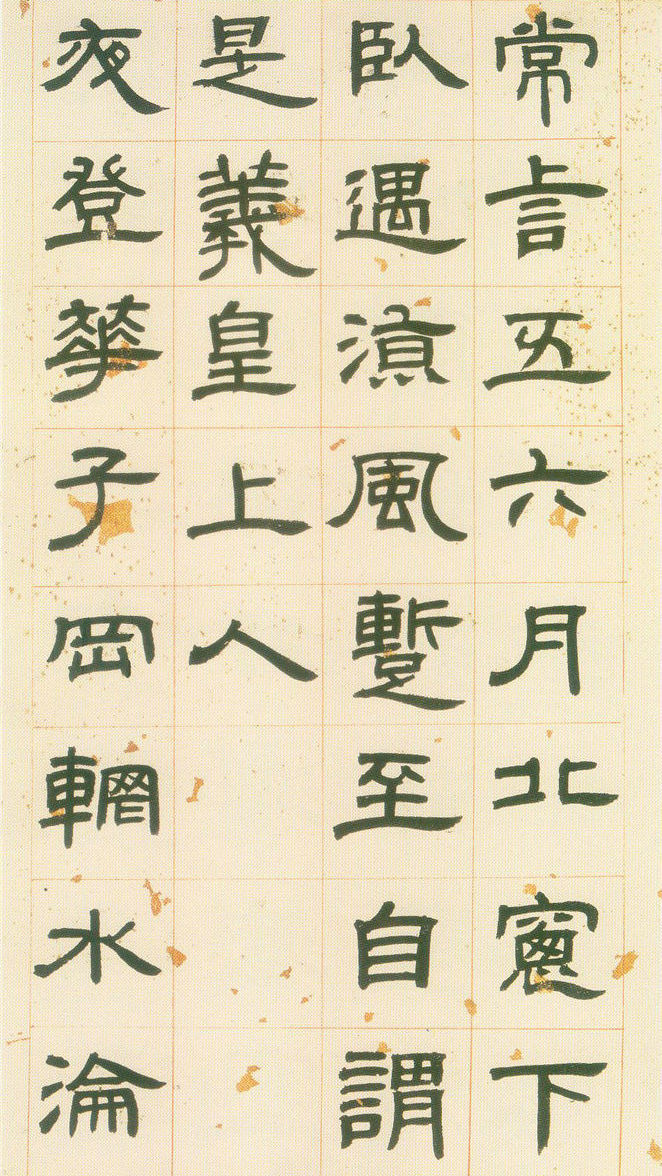 常言五六月北窻下
臥遇涼風暫至自謂
是羲皇上人
夜登華子岡輞水淪